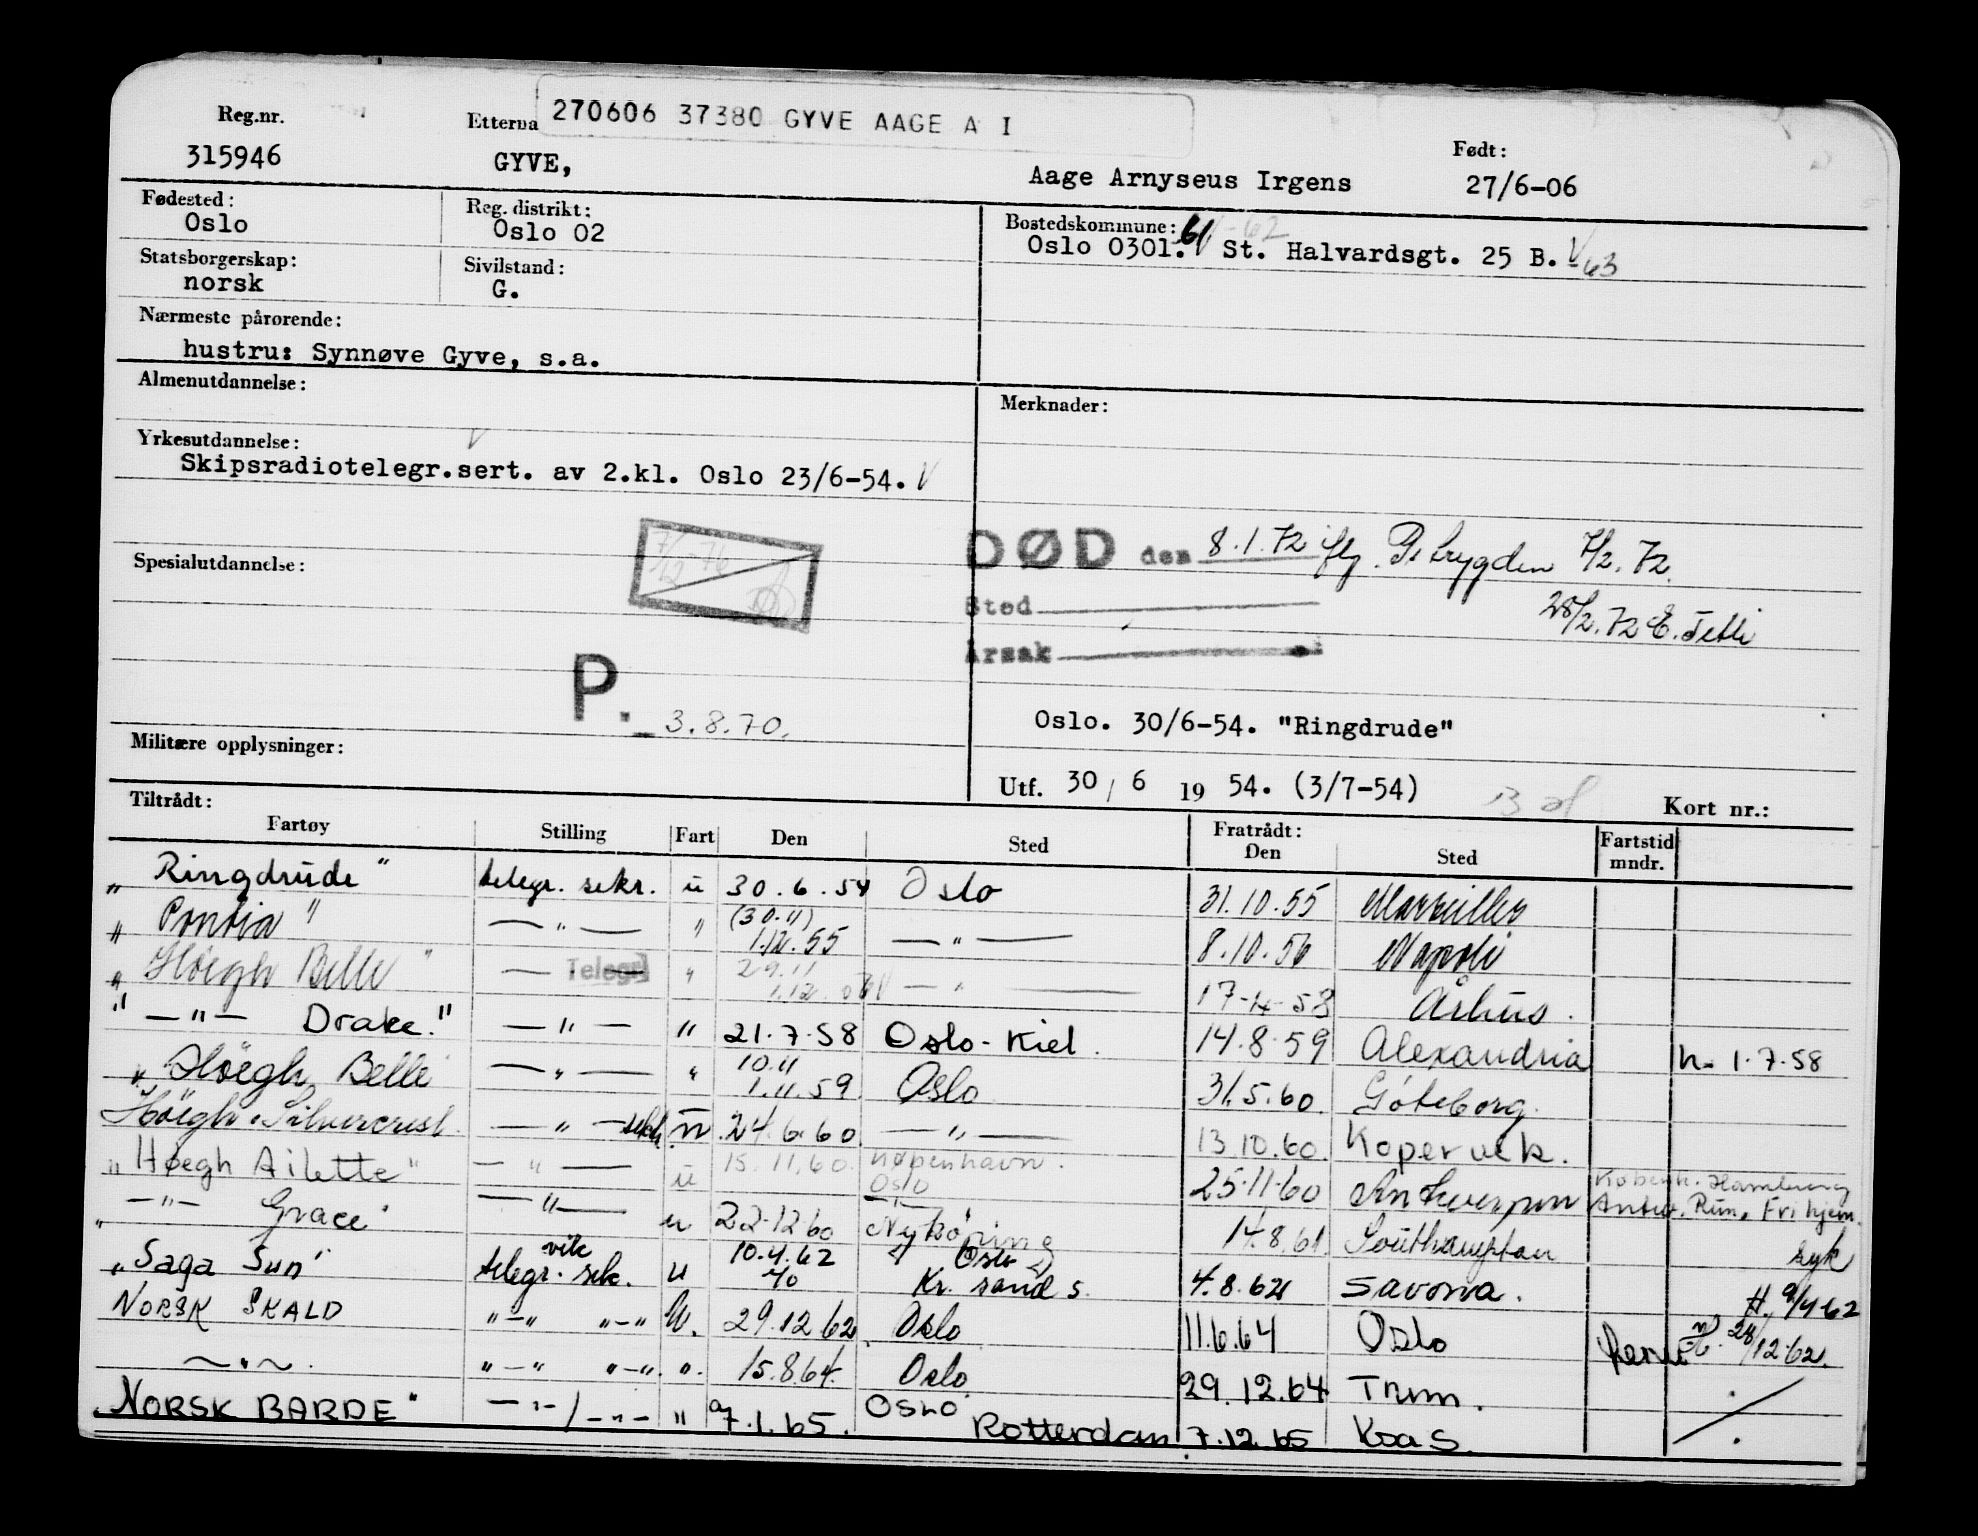 270606 37380 GYVE AAGE A I
Reg.nr.
Etterna
Født:
315946
GYVE,
Aage Arnyseus Irgens
27/6-06
Fødested:
Oslo
Reg. distrikt:
Oslo 02
Bostedskommune: 61 -62
Oslo 0301. St. Halvardsgt. 25 B. 63
Statsborgerskap:
norsk
Sivilstand:
G.
Nærmeste pårørende:
hustru: Synnøve Gyve, s.a.
Almenutdannelse:
Merknader:
Yrkesutdannelse:
Skipsradiotelegr.sert. av 2.kl. Oslo 23/6-54.
DØD den 8.1.72 7/2.72.
Spesialutdannelse:
Sted
28/2.72
Årsak
P. 3.8.70.
Oslo. 30/6-54. "Ringdrude"
Militære opplysninger:
Utf. 30/ 6 19 54. (3/7-54)
Kort nr.:
Tiltrådt:
Fartøy Stilling Fart Den Sted Fratrådt: Den Sted Fartstid mndr.
" Ringdrude " telegr. sekr. u 30.6.54 Oslo 31.10.55 Marseilles
" Pontia " — " — " (30.11) 1.12.55 — " — 8.10.56 Napoli
" Höegh Belle " — Telegr " 29.11 1.12. — " — 17-4-58 Århus.
" — " — Drake." — " — " 21.7.58 Oslo - Kiel. 14.8.59 Alexandria h. 1.7.58
" Höegh Belle — " — " 10.11 1.11.59 Oslo 31.5.60. Göteborg.
Höegh Silvercrest. — " — sekr ü 24.6.60 — " — 13.10.60. Kopervik.
" Høegh Ailette " — " — u 15.11.60. København. Oslo 25-11-60 Antwerpen Københ. Hamburg
" — " — Grace " — " — u 22.12.60 Nykøbing 14.8.61. Southampton Antw. Fri hjem. syk
" Saga Sun " telegr. vik sek. u 10.4.62 Oslo Kr. sand S. 4.8.62 Savona. H. 9/4-62
NORSK SKALD " — " " — " U. 29.12.62 Oslo 11.6.64 Oslo 28/12.62.
— " —. " — " " — ". ". 15.8.64. Oslo 29.12.64 Trm.
" NORSK BARDE " — " — / — " — " 7.1.65. OSLO Rotterdam 7.12.65 Kra S.